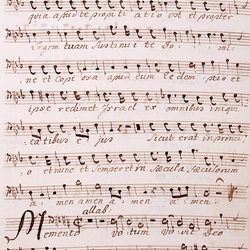 quia apud te propiti atio est et propter
legem tuam sustinui te Do: mi:
ne et Copiosa apud eum redemptio et
ipse redimet Israel ex omnibus iniqui
tatibus ejus Sicut erat in princi
o et nunc et semper et in Sæcula sæculorum
a: men amen a: men a: men:
allab:
Memento vo: tum vo vit Deo